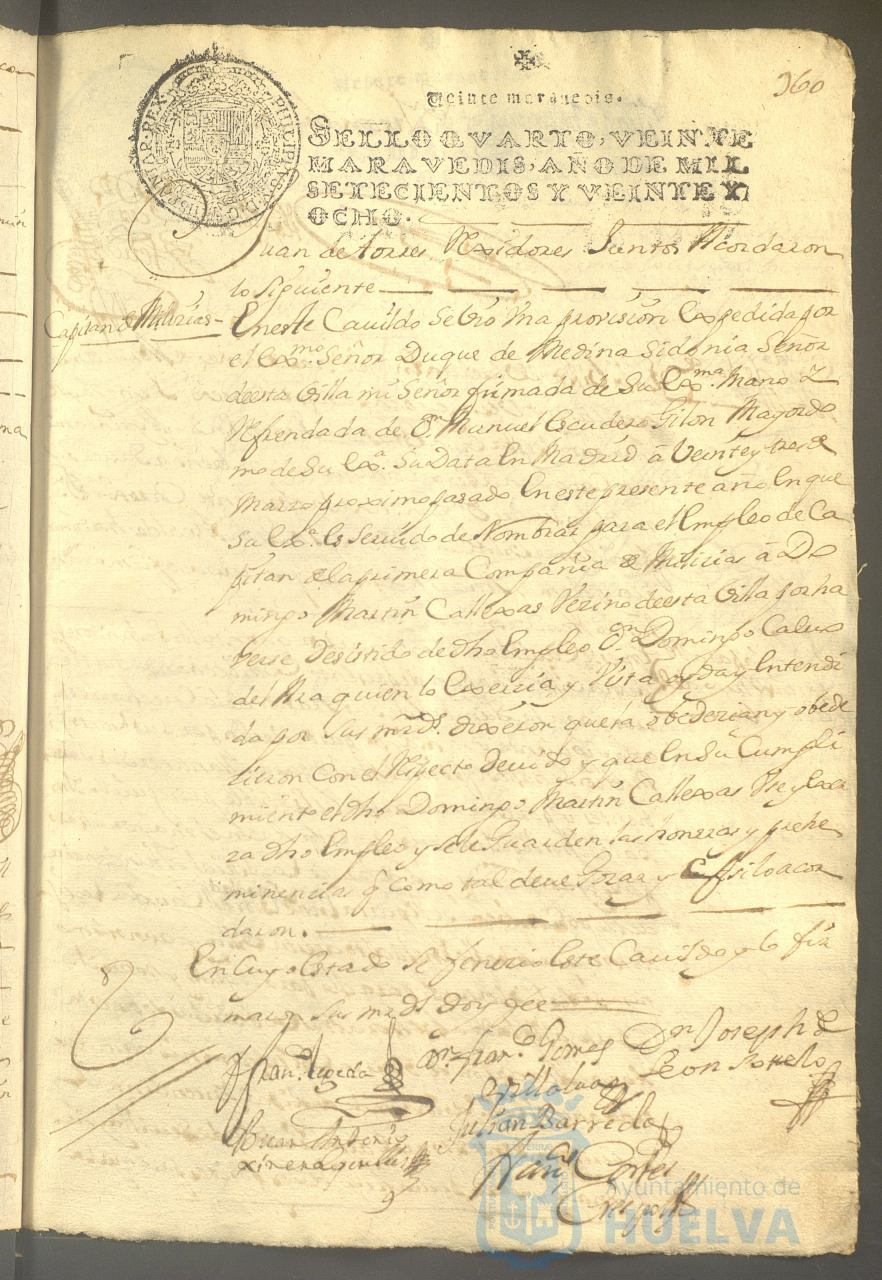 360
Veinte maravedis.
SELLO QVARTO, VEINTE
MARAVEDIS, AÑO DE MIL
SETECIENTOS Y VEINTE Y
OCHO.
Juan de torres Rexidores Juntos Acordaron
lo siguiente
Capitan de Milizias
En este Cavildo se bio Una provision Expedida por
el Exmo. Señor Duque de Medina Sidonia Señor
de esta Villa mi Señor firmada de Su Exma. Mano y
Refrendada de Dn. Manuel Escudero Gilon Mayordo
mo de Su Exa. Su Data En Madrid â Veinte y tres de
Marzo proximo pasado En este presente año En que
Su Exa. Es Servido de Nombrar para el Empleo de Ca
pitan de la primera Compañia de Milicias â Do
mingo Martin Callexas Vezino de esta Villa por ha
verse Desistido de dho Empleo Dn. Domingo
del quien lo Exercia y Vista oyda y Entendi
da por Sus mrds. dixeron que la obedezian y obede
zieron Con el Respecto Devido y que En Su Cumpli
miento el dho Domingo Martin Callexas Use y Exer
za dho Empleo y se le Guarden las honrras y prehe
minencias q Como tal deve Gozar y asi lo acor
daron.
En Cuyo Estado Se fenecio Este Cavildo y lo fir
maron Sus mrds doy fee
Dn. Joseph de
Leon
Dn. Fran.co Gomes
Villalva
Julian Barreda
Juan Antonio
ximenez
Fran.co Cortes
Crespo
Ayuntamiento de
HUELVA